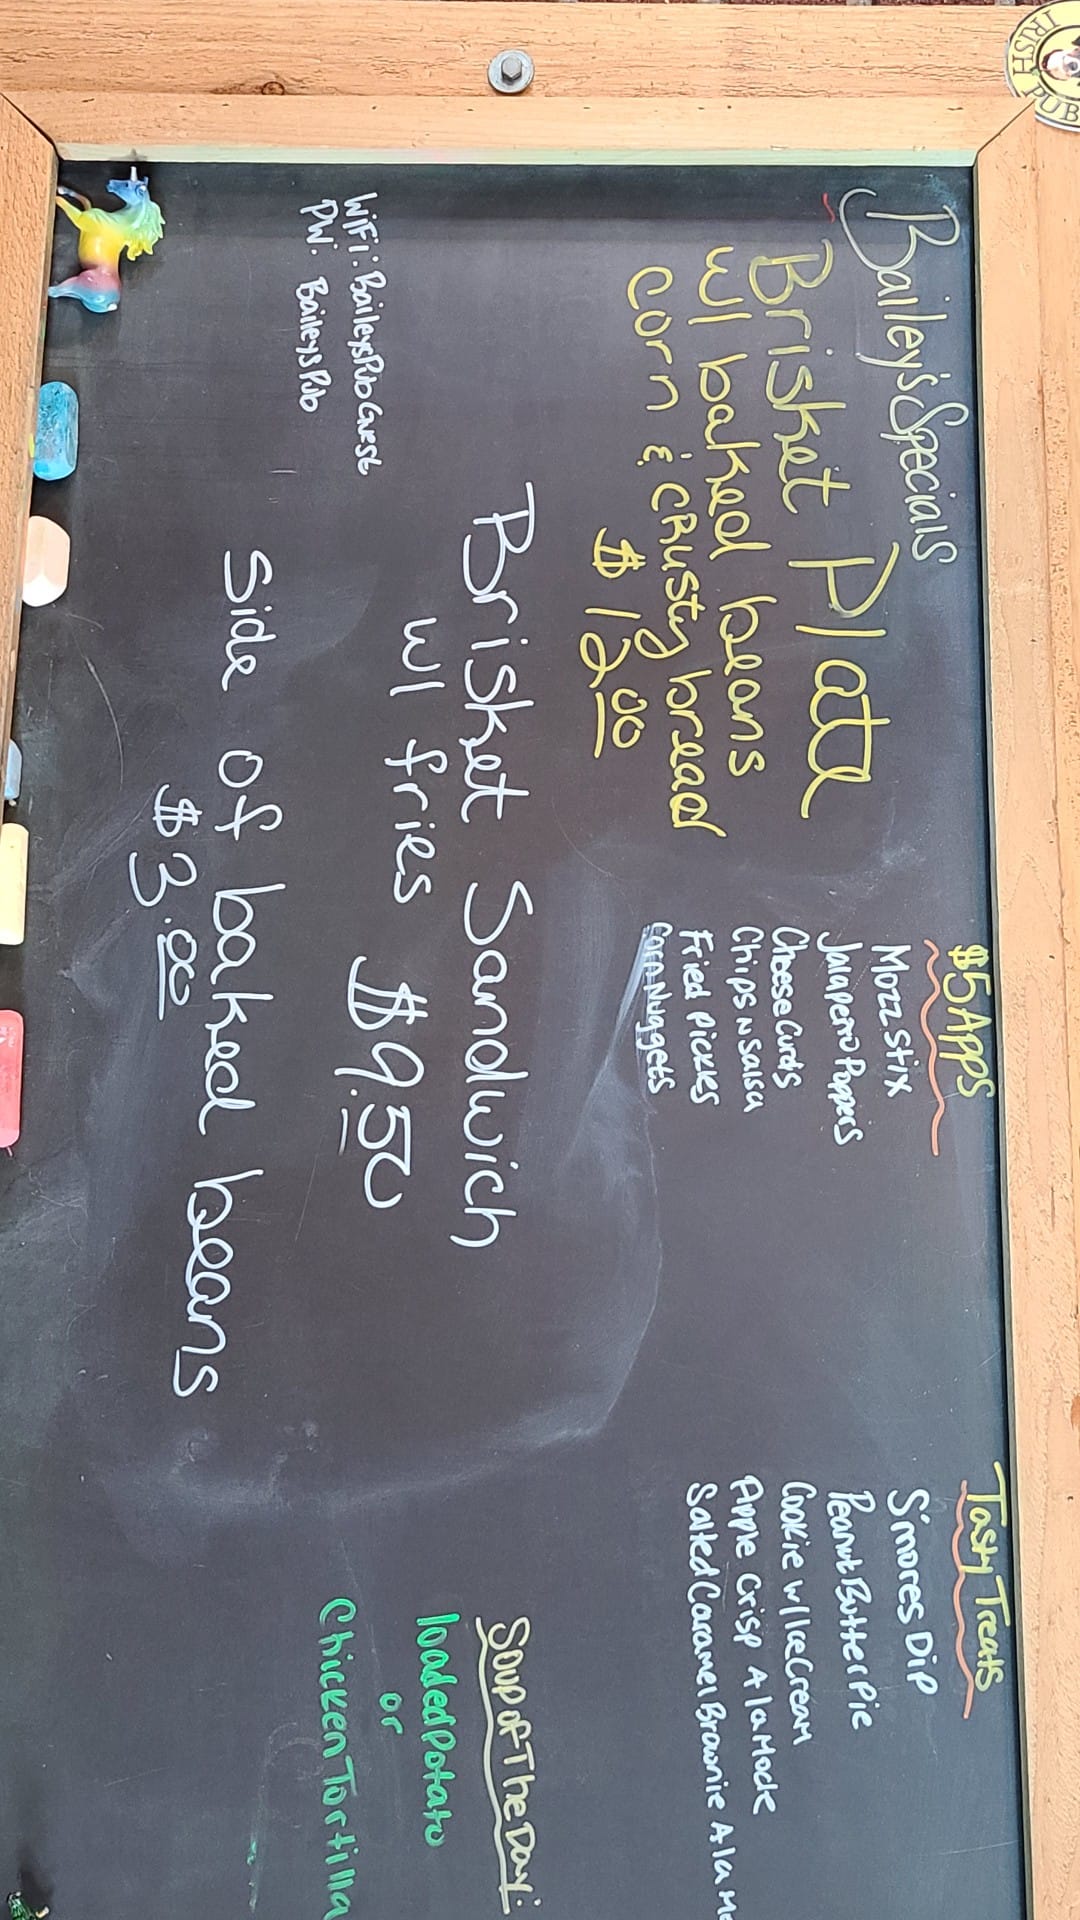 IRISH PUB
Bailey's Specials
Brisket Plate
w/ baked beans
corn & crusty bread
$12.00
Brisket Sandwich
w/ fries $9.50
Side of baked beans
$3.00
WiFi: BaileysPubGuest
PW: BaileysPub
$5 Apps
Mozz Stix
Jalapeno Poppers
Cheese Curds
Chips N Salsa
Fried Pickles
Corn Nuggets
Tasty Treats
S'mores Dip
Peanut Butter Pie
Cookie w/ Ice Cream
Apple Crisp A la Mode
Salted Caramel Brownie A la Mo
Soup of The Day:
loaded potato
or
Chicken Tortilla